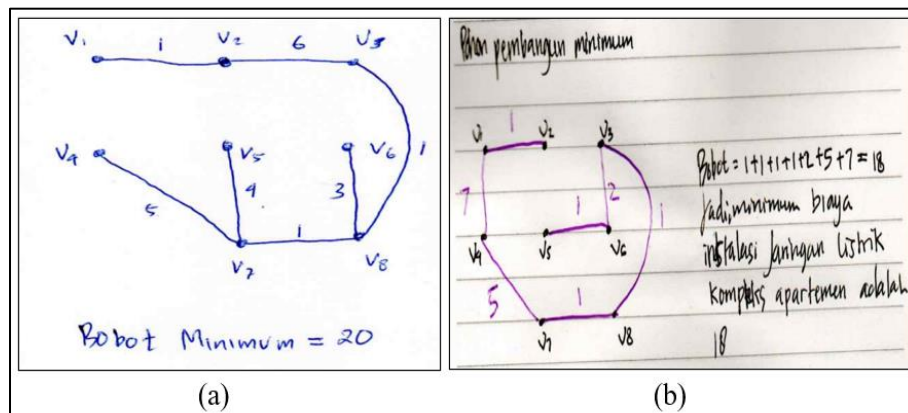 V1 1 V2 6 V3
V4 V5 V6 1
5 4 3
1
V7 V8
Bobot Minimum = 20
(a)
Pohon pembangun minimum
V1 1 V2 V3
7 1 2 1
V4 V5 V6
5 1
V7 V8
Bobot = 1+1+1+1+2+5+7 = 18
Jadi, minimum biaya
instalasi jaringan listrik
kompleks apartemen adalah
18
(b)